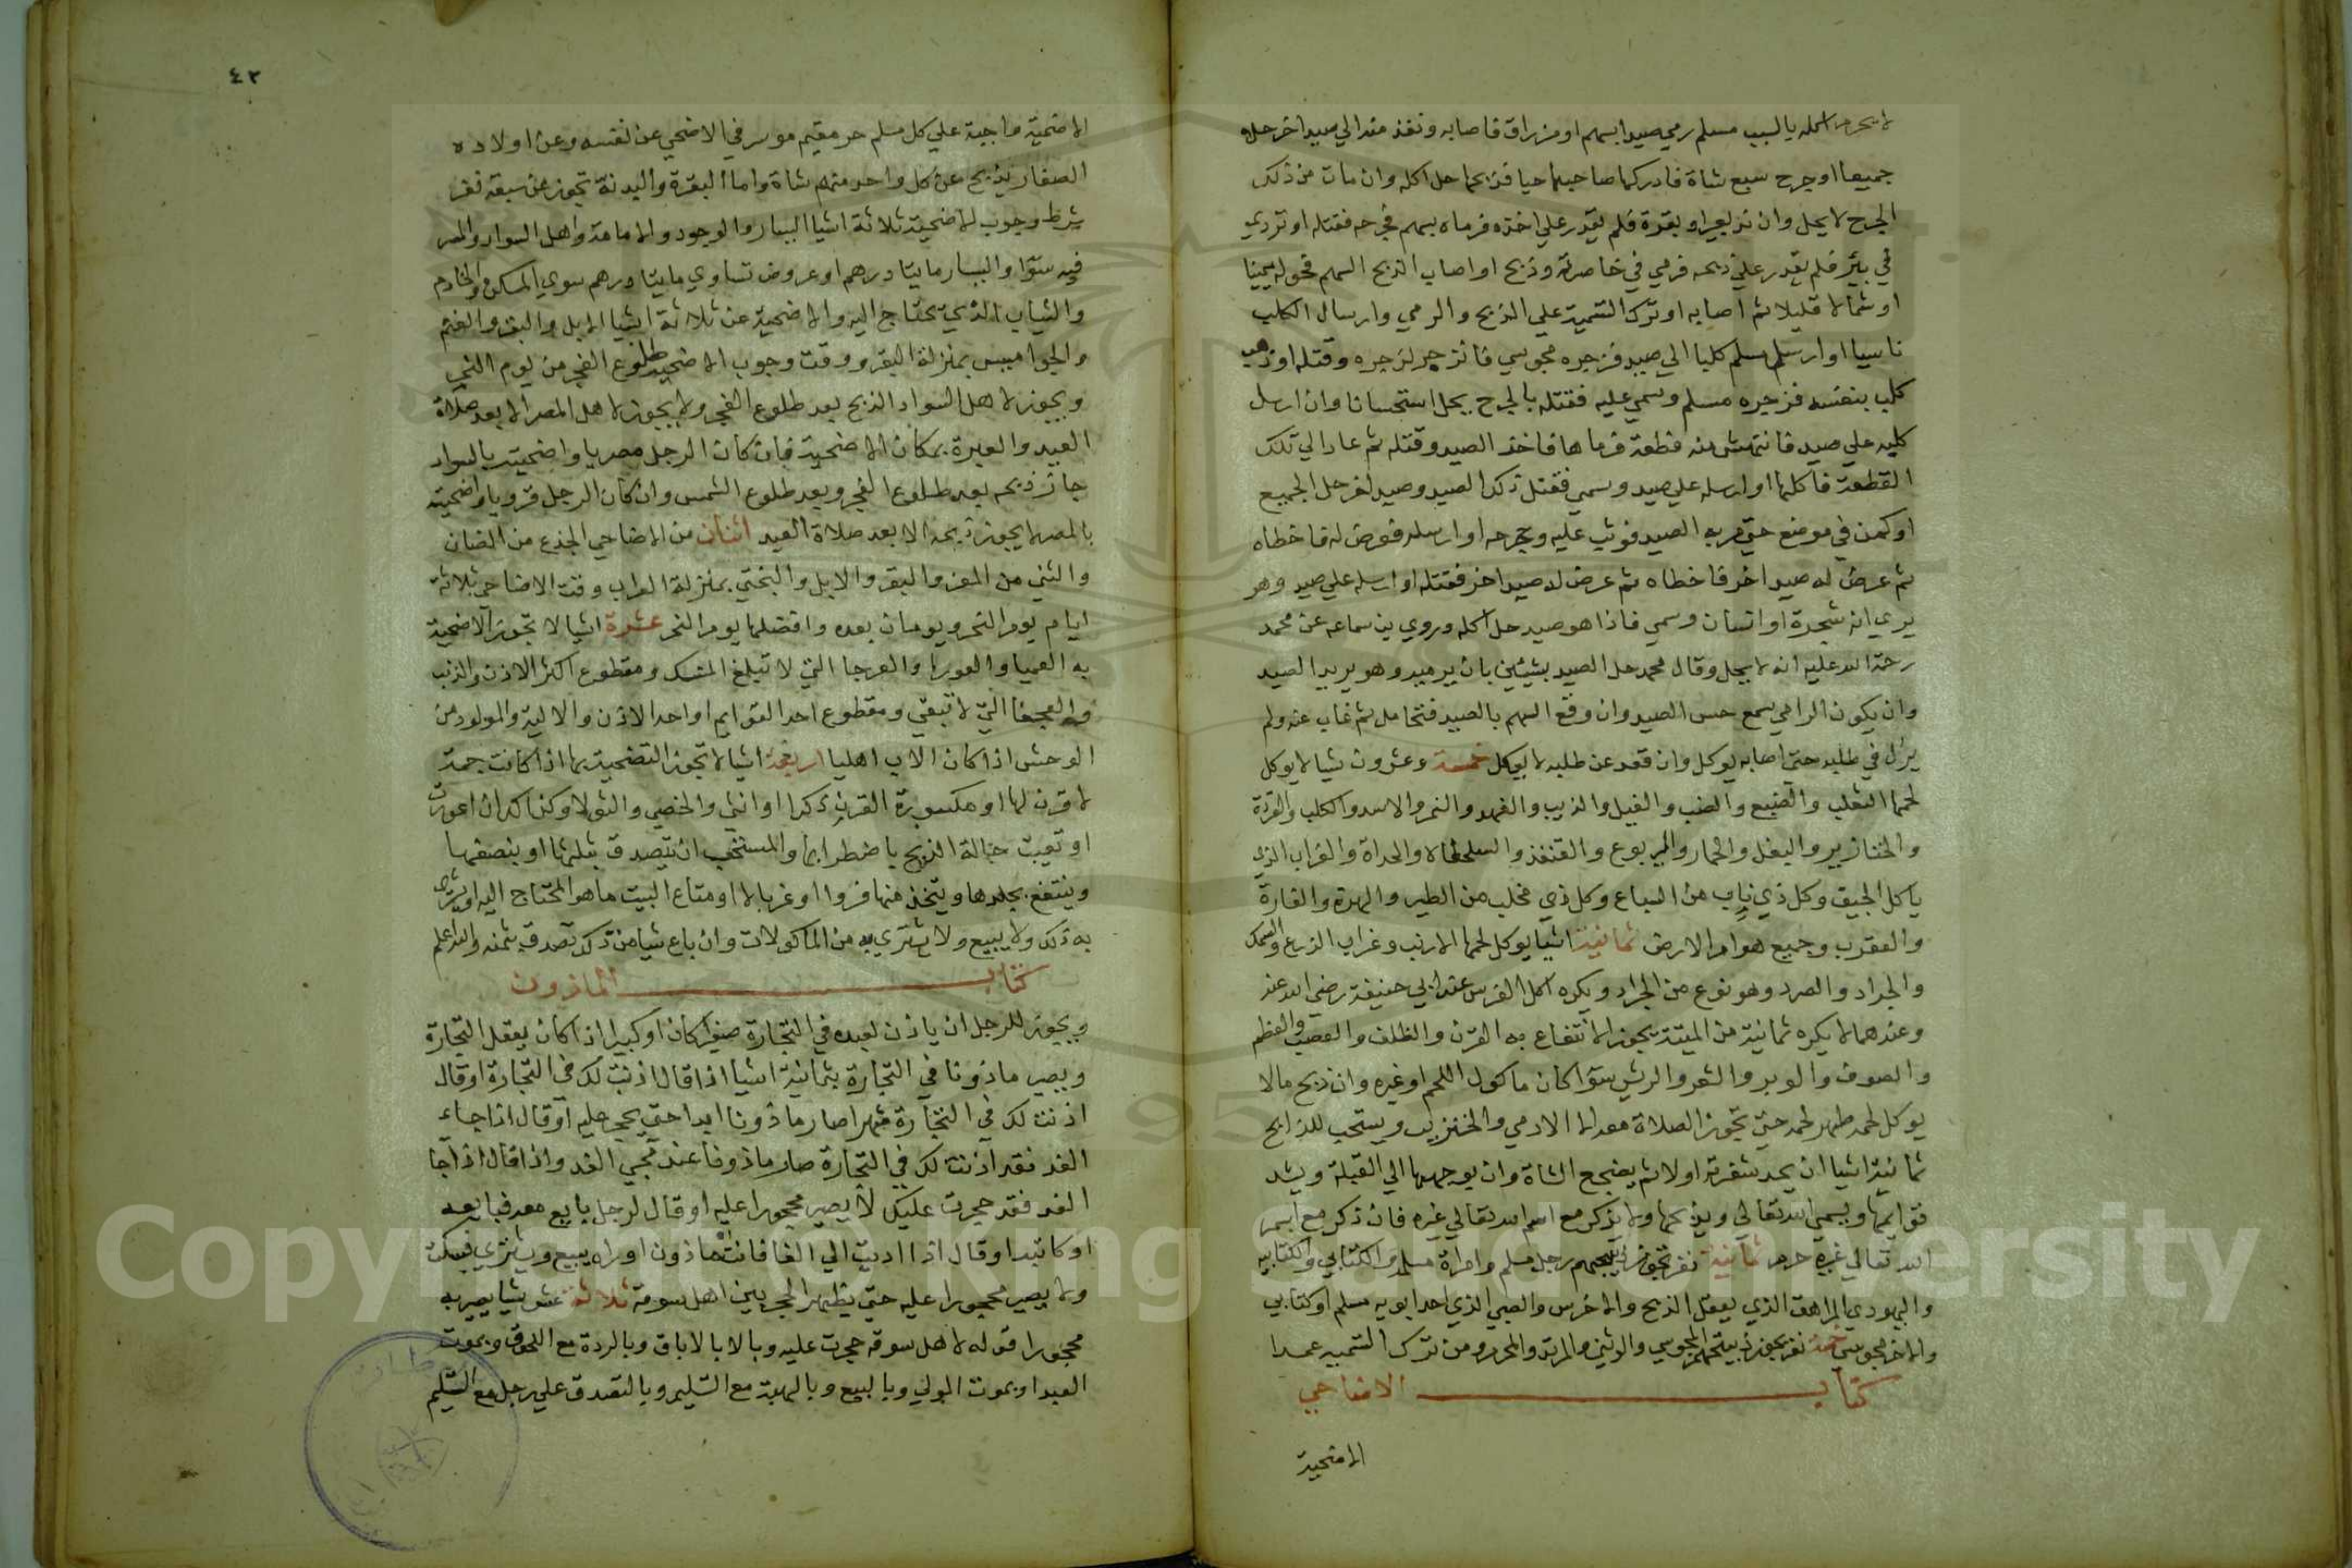 لا يحرم اكله بالسبب مسلم رمي صيدا بسهم او مزراق فاصابه ونفذ منه الي صيد اخر حله
جميعا او جرح سبع شاة فادركها صاحبها حيا فذبحها حل اكله وان مات من ذلك
الجرح لا يحل وان ند بعير او بقرة فلم يقدر علي اخذه فرماه بسهم فجرحه فقتله او تردي
في بئر فلم يقدر علي ذبحه فرمي في خاصرته وذبح او اصاب الذبح السهم فحوله يمينا
او شمالا قليلا ثم اصابه او ترك التسمية علي الذبح والرمي وارسال الكلب
ناسيا او ارسل مسلم كلبا الي صيد فزجره مجوسي فانزجر لزجره وقتله او ذهب
كلب بنفسه فزجره مسلم وسمي عليه فقتله بالجرح يحل استحسانا وان ارسل
كلبه علي صيد فانتهش منه قطعة فرماها فاخذ الصيد وقتله ثم عاد الي تلك
القطعة فاكلها او ارسله علي صيد وسمي فقتل ذكد الصيد وصيد اخر حل الجميع
او كمن في موضع حتي مر به الصيد فوثب عليه وجرحه او ارسله فعرض له فاخطاه
ثم عرض له صيد اخر فاخطاه ثم عرض له صيد اخر فقتله او ارسله علي صيد وهو
يري انه شجرة او انسان وسمي فاذا هو صيد حل اكله وروي بن سماعه عن محمد
رحمة الله عليه انه لا يحل وقال محمد حل الصيد بشيئين بان يرميه وهو يريد الصيد
وان يكون الرامي سمع حس الصيد وان وقع السهم بالصيد فتحامل ثم غاب عنه ولم
يزل في طلبه حتي اصابه يوكل وان قعد عن طلبه لا يوكل خمسة وعشرون شيا لا يوكل
لحمها الثعلب والضبع والضب والفيل والذيب والفهد والنمر والاسد والكلب والقردة
والخنازير والبغل والحمار واليربوع والقنفذ والسلحفاة والحداة والغراب الذي
ياكل الجيف وكل ذي ناب من السباع وكل ذي مخلب من الطير والهرة والفارة
والعقرب وجميع هوام الارض ثمانية اشيا يوكل لحمها الارنب وغراب الزرع والسمك
والجراد والصرد وهو نوع من الجراد ويكره اكل الفرس عند ابي حنيفة رضي الله عنه
وعندهما لا يكره ثمانية من الميتة يجوز الانتفاع به القرن والظلف والعصب والعظم
والصوف والوبر والشعر والريش سوا كان ماكول اللحم او غيره وان ذبح مالا
يوكل لحمه طهر لحمه حتي تجوز الصلاة معه الا الادمي والخنزير ويستحب للذابح
ثمانية اشيا ان يحد شفرته اولا ثم يضجع الشاة وان يوجهها الي القبلة ويشد
قوايمها ويسمي الله تعالي ويذبحها ولا يذكر مع اسم الله تعالي غيره فان ذكر مع اسم
الله تعالي غيره حرم ثمانية نفر تجوز ذبيحتهم رجل مسلم وامراة مسلم والكتابي والكتابيه
واليهودي المراهق الذي يعقل الذبح والاخرس والصبي الذي احد ابويه مسلم او كتابي
والاخر مجوسي خمسة نفر يجوز ذبيحتهم المجوسي والوثني والمرتد والمحرم ومن ترك التسميه عمدا
كتاب الاضاحي
الاضحية
٤٢
الاضحية واجبة علي كل مسلم حر مقيم موسر في الاضحي عن نفسه وعن اولاده
الصغار يذبح عن كل واحد منهم شاة واما البقرة والبدنة تجوز عن سبعة نفر
شرط وجوب الاضحية ثلاثة اشيا اليسار والوجود والاقامة واهل السواد والمصر
فيه سوا واليسار مايتا درهم او عروض تساوي مايتا درهم سوي المسكن والخادم
والثياب الذي يحتاج اليه والاضحية عن ثلاثة اشيا الابل والبقر والغنم
والجواميس بمنزلة البقر ووقت وجوب الاضحية طلوع الفجر من يوم النحر
ويجوز لاهل السواد الذبح بعد طلوع الفجر ولا يجوز لاهل المصر الا بعد صلاة
العيد والعبرة بمكان الاضحية فان كان الرجل مصريا واضحيته بالسواد
جاز ذبحه بعد طلوع الفجر وبعد طلوع الشمس وان كان الرجل قرويا واضحيته
بالمصر لا يجوز ذبحه الا بعد صلاة العيد اثنان من الاضاحي الجذع من الضان
والثني من المعز والبقر والابل والبختي بمنزلة العراب وقت الاضاحي ثلاثة
ايام يوم النحر ويومان بعده وافضلها يوم النحر عشرة اشيا لا تجوز الاضحية
به العميا والعورا والعرجا التي لا تبلغ المنسك ومقطوع اكثر الاذن والذنب
والعجفا التي لا تبقي ومقطوع احد القوايم او احد الاذن والالية والمولود من
الوحش اذا كان الاب اهليا اربعة اشيا تجوز التضحية بها اذا كانت جمة
لا قرن لها او مكسورة القرن ذكرا او انثي والخصي والثولا وكذا كد ان اعورت
او تعيبت حالة الذبح باضطرابها والمستحب ان يتصدق بثلثها او بنصفها
وينتفع بجلدها ويتخذ منها فروا او غربالا او متاع البيت ما هو المحتاج اليه او يشتري
به ذلك ولا يبيع ولا يشتري به من الماكولات وان باع شيا من ذكك تصدق بثمنه والله اعلم
كتاب الماذون
ويجوز للرجل ان ياذن لعبده في التجارة صغيرا كان او كبيرا اذا كان يعقل التجارة
ويصير ماذونا في التجارة بثمانية اشيا اذا قال اذنت لك في التجارة او قال
اذنت لك في التجارة شهرا صار ماذونا ابدا حتي يحجر عليه او قال اذا جاء
الغد فقد اذنت لك في التجارة صار ماذونا عند مجي الغد واذا قال اذا جا
الغد فقد حجرت عليك لا يصير محجورا عليه او قال لرجل بايع معه فبايعه
او كاتبه او قال اذا اديت الي الفا فانت ماذون او راه يبيع ويشتري فيسكت
ولا يصير محجورا عليه حتي يظهر الحجر بين اهل سوقه ثلاثة عشر شيا يصير به
محجورا قوله لاهل سوقه حجرت عليه وبالاباق وبالردة مع اللحوق وبموت
العبد او بموت المولي وبالبيع وبالهبة مع التسليم وبالتصدق علي رجل مع التسليم
Copyright © King Saud University